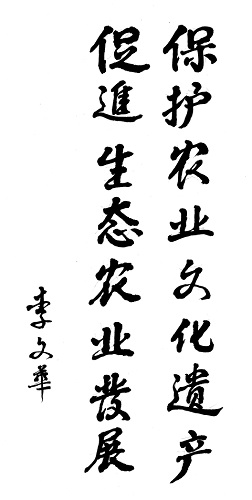 保护农业文化遗产
促進生态农业發展
李文華